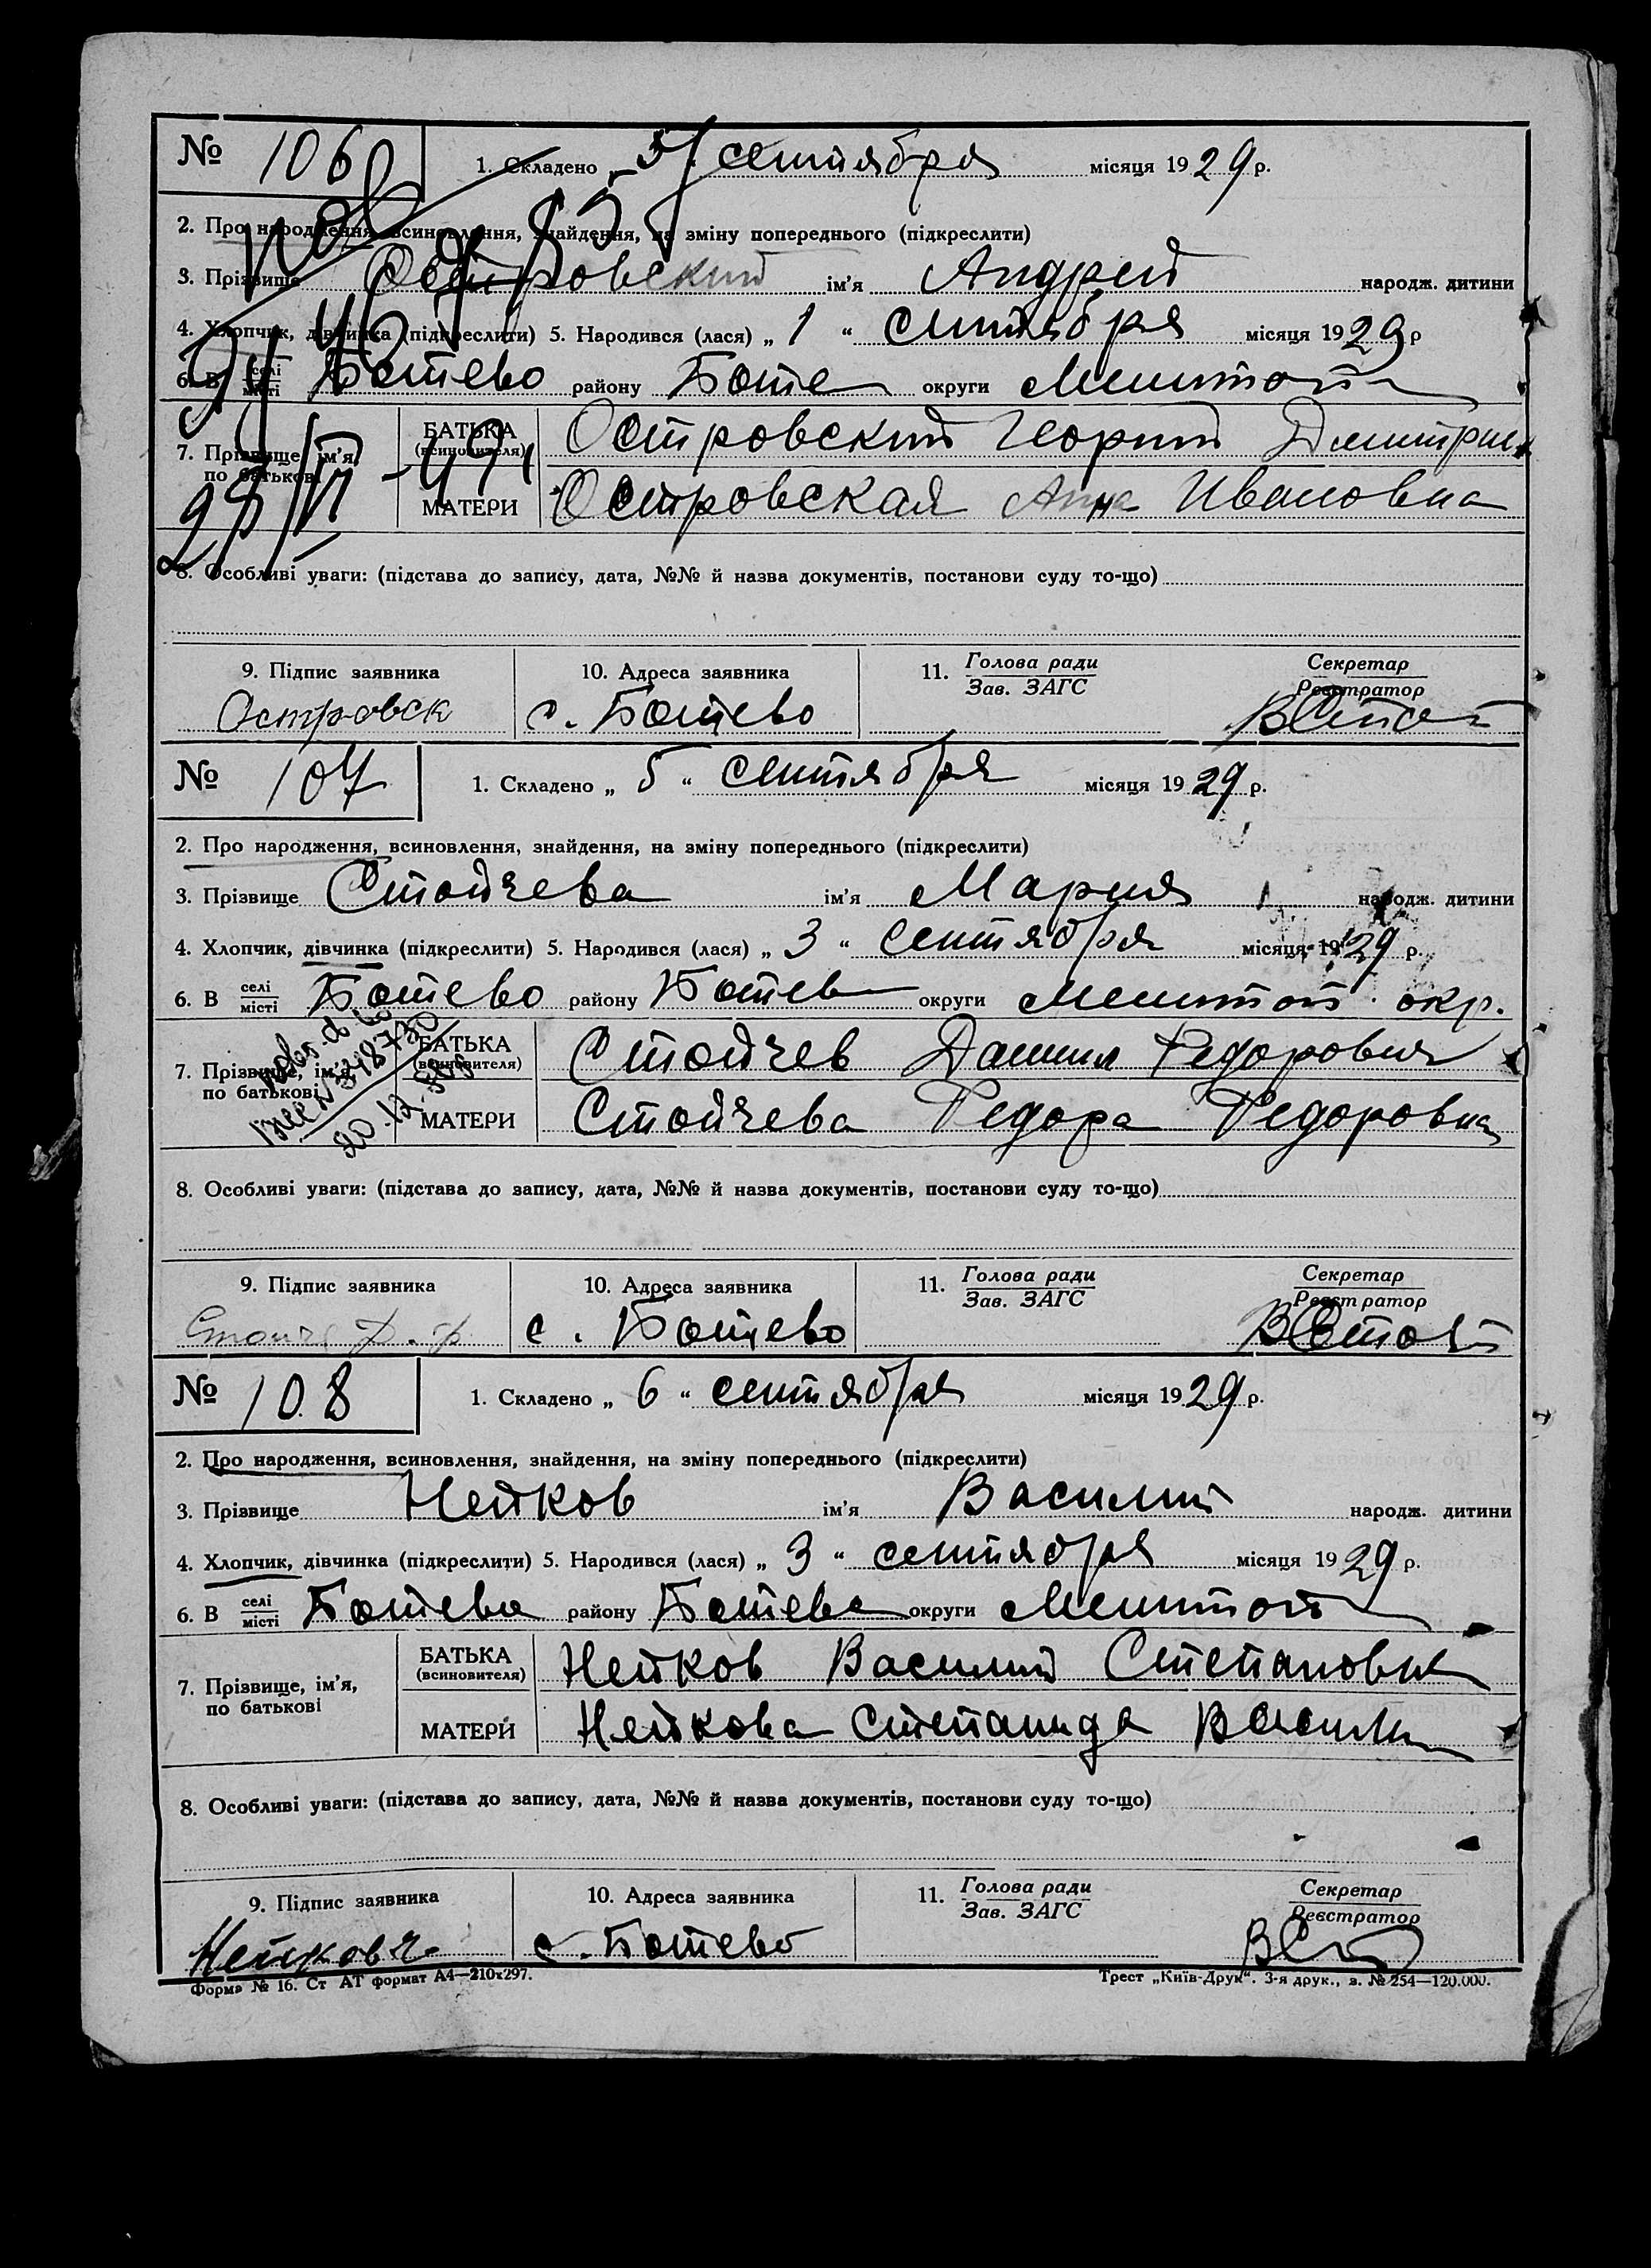 № 106 1. Складено „ 5 " сентября місяця 1929 р.
2. Про народження, всиновлення, знайдення, на зміну попереднього (підкреслити)
3. Прізвище Островский ім'я Андрей народж. дитини
4. Хлопчик, дівчинка (підкреслити) 5. Народився (лася) „ 1 " сентября місяця 1929 р
6. В селі/місті Ботево району Боте округи Мелитоп
7. Прізвище, ім'я, по батькові
БАТЬКА (всиновителя) Островский Георгий Дмитриев
МАТЕРИ Островская Анна Ивановна
8. Особливі уваги: (підстава до запису, дата, №№ й назва документів, постанови суду то-що)
9. Підпис заявника 10. Адреса заявника 11. Голова ради/Зав. ЗАГС Секретар/Реєстратор
Островск с. Ботево
№ 107 1. Складено „ 5 " сентября місяця 1929 р.
2. Про народження, всиновлення, знайдення, на зміну попереднього (підкреслити)
3. Прізвище Стойчева ім'я Мария народж. дитини
4. Хлопчик, дівчинка (підкреслити) 5. Народився (лася) „ 3 " сентября місяця 1929 р.
6. В селі/місті Ботево району Ботев округи Мелитоп. окр.
7. Прізвище, ім'я, по батькові
БАТЬКА (всиновителя) Стойчев Даниил Федорович
МАТЕРИ Стойчева Федора Федоровна
20.12.
8. Особливі уваги: (підстава до запису, дата, №№ й назва документів, постанови суду то-що)
9. Підпис заявника 10. Адреса заявника 11. Голова ради/Зав. ЗАГС Секретар/Реєстратор
с. Ботево
№ 108 1. Складено „ 6 " сентября місяця 1929 р.
2. Про народження, всиновлення, знайдення, на зміну попереднього (підкреслити)
3. Прізвище Нейков ім'я Василий народж. дитини
4. Хлопчик, дівчинка (підкреслити) 5. Народився (лася) „ 3 " сентября місяця 1929 р.
6. В селі/місті Ботево району Ботево округи Мелитоп
7. Прізвище, ім'я, по батькові
БАТЬКА (всиновителя) Нейков Василий Степанович
МАТЕРИ Нейкова Степанида Васил
8. Особливі уваги: (підстава до запису, дата, №№ й назва документів, постанови суду то-що)
9. Підпис заявника 10. Адреса заявника 11. Голова ради/Зав. ЗАГС Секретар/Реєстратор
Нейков с. Ботево
Форма № 16. Ст АТ формат А4—210х297. Трест „Київ-Друк". 3-я друк., з. № 254—120.000.